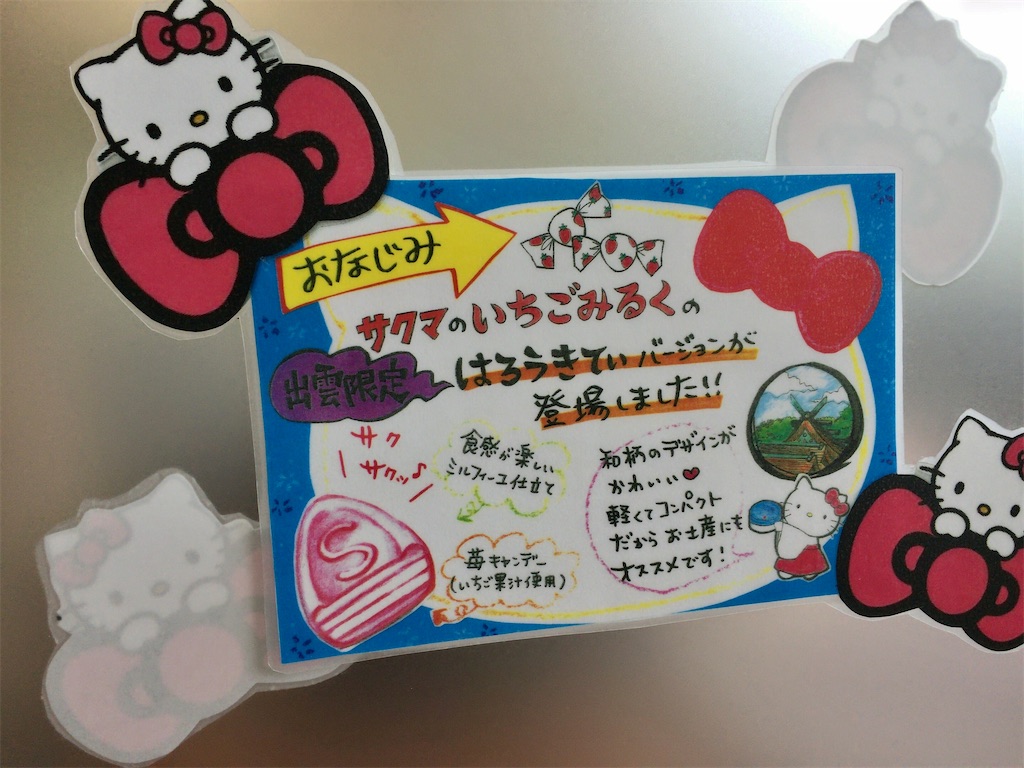 おなじみ
サクマのいちごみるくの
出雲限定
はろうきてぃバージョンが
登場しました!!
サク
サクッ♪
食感が楽しい
ミルフィーユ仕立て
苺キャンデー
(いちご果汁使用)
S
和柄のデザインが
かわいい♥
軽くてコンパクト
だからお土産にも
オススメです!